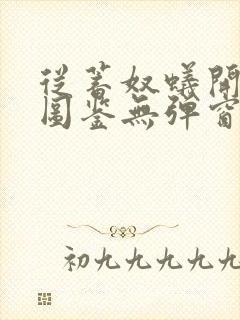 從蓄奴蟻開
圖鑒無彈窗
初九九九九九